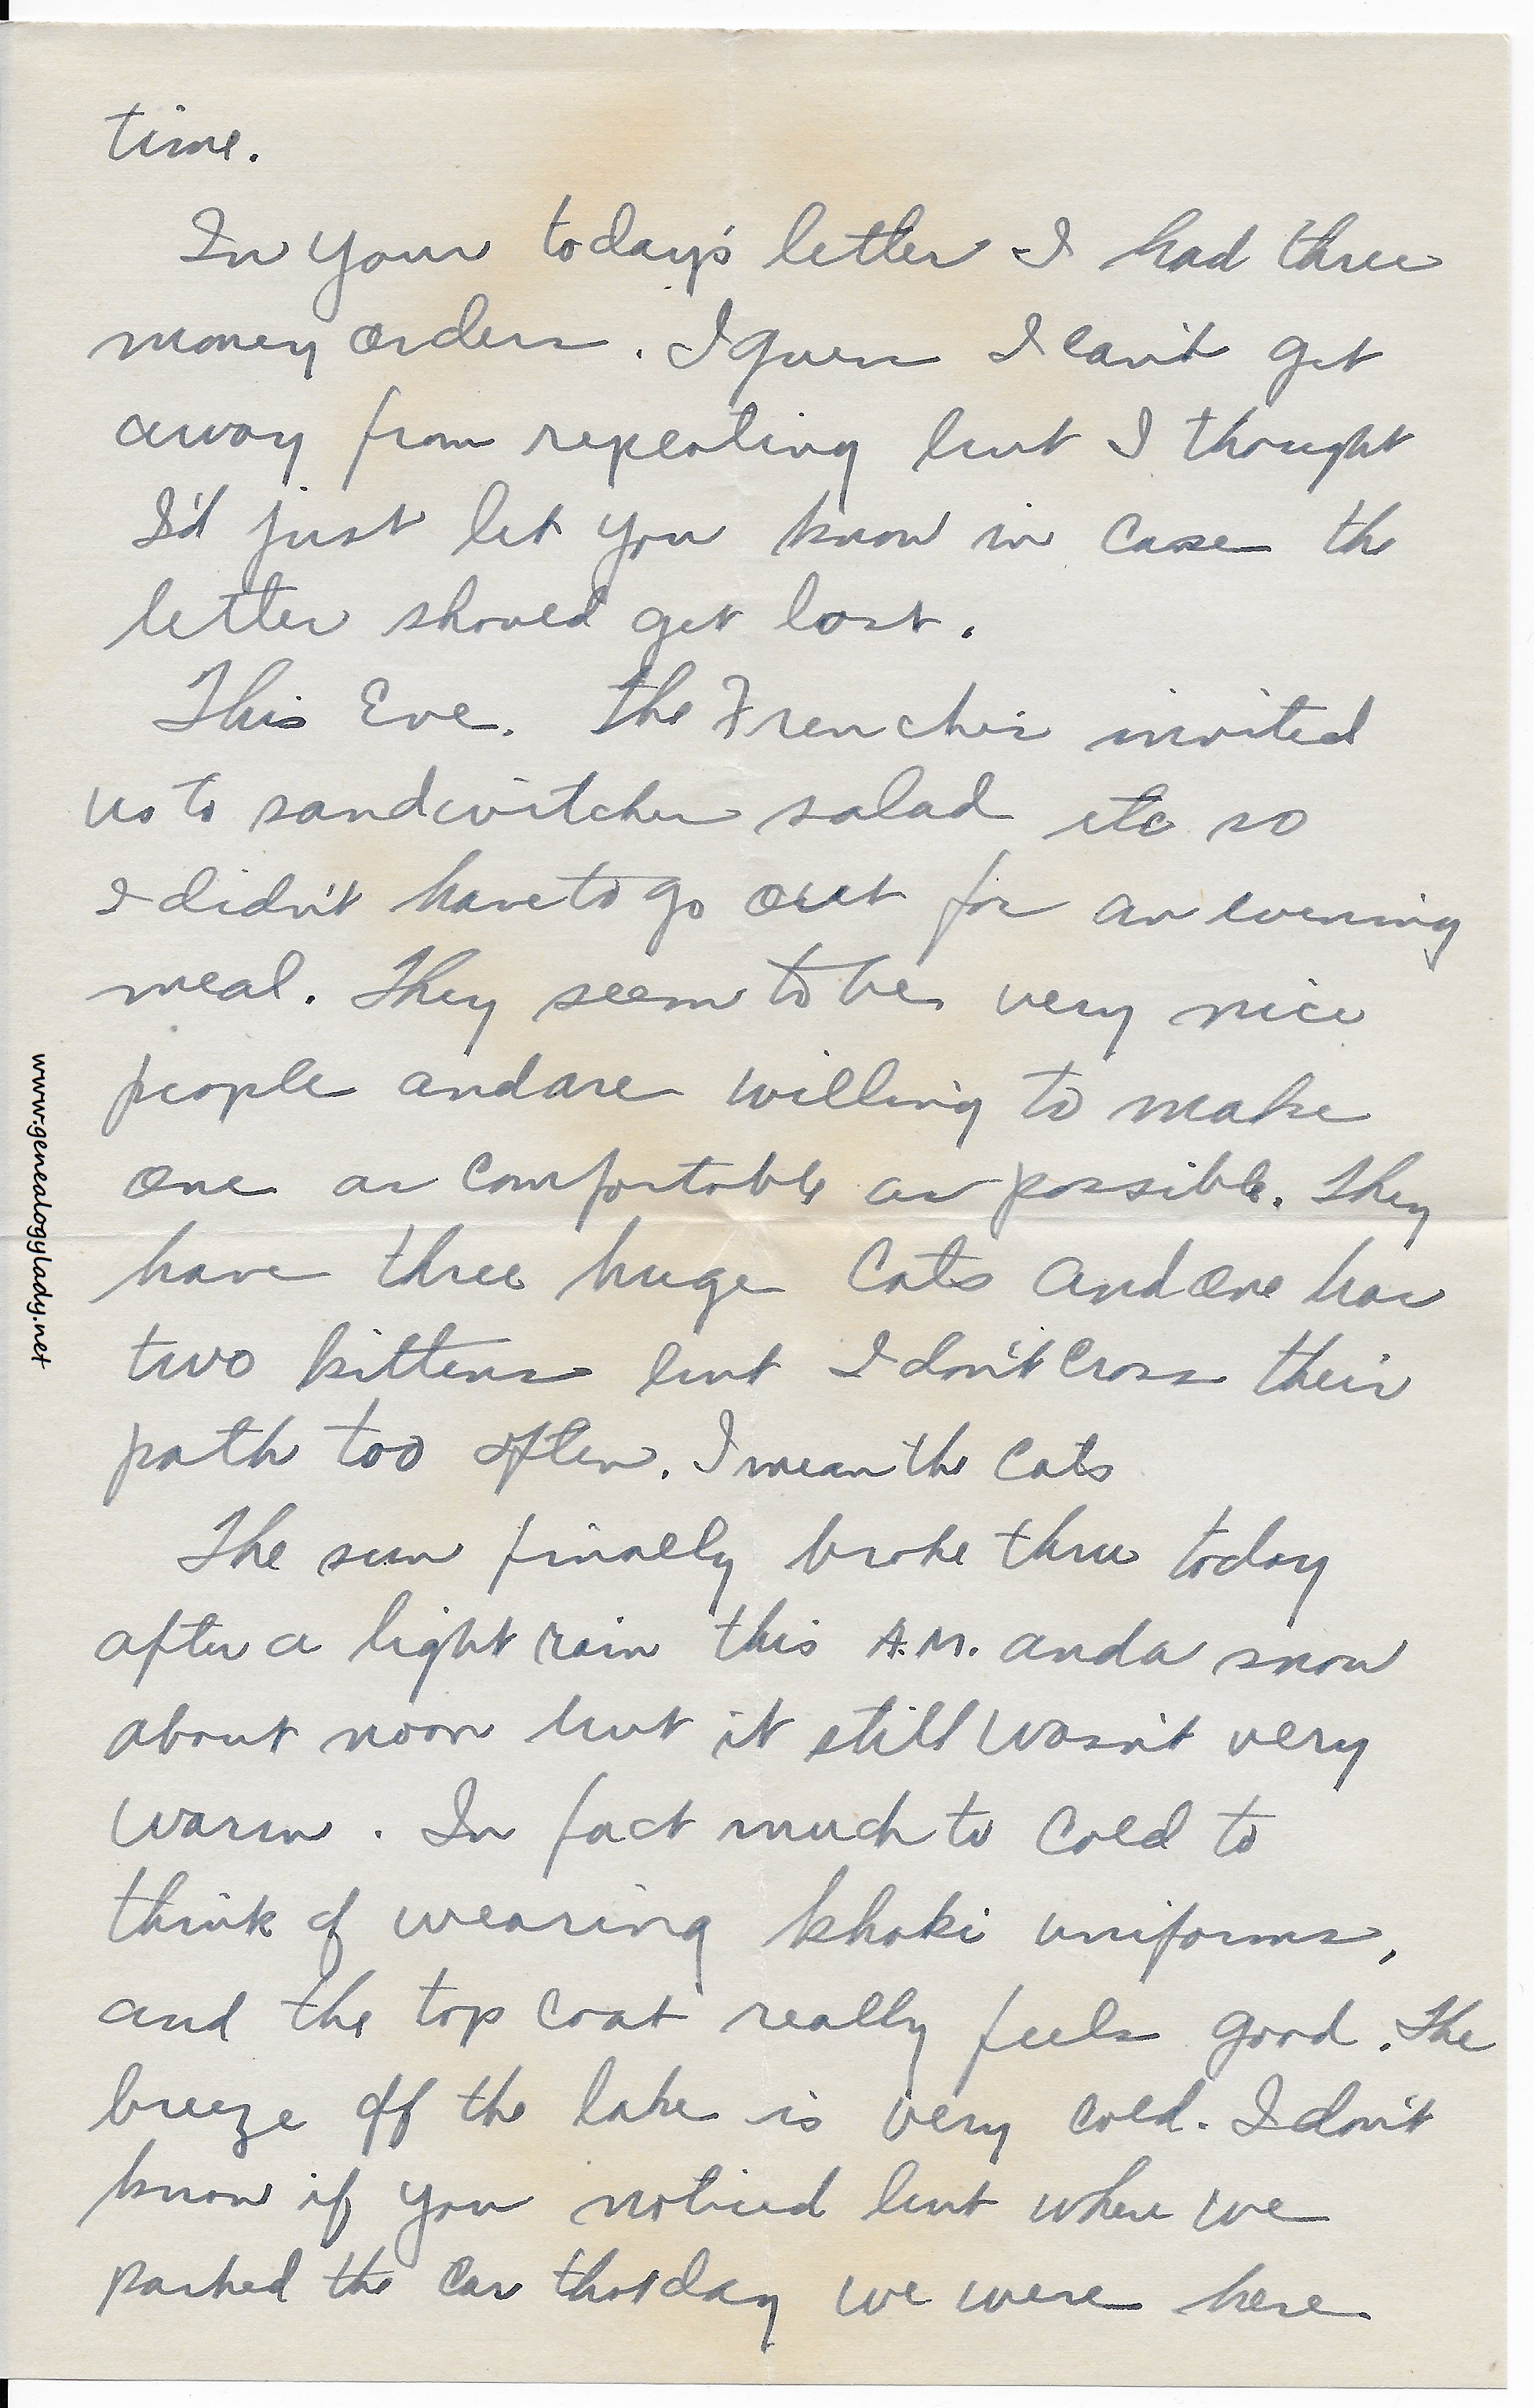 time.
In your today's letter I had three
money orders. I guess I can't get
away from repeating but I thought
I'd just let you know in case the
letter should get lost.
This Eve. the Frenches invited
us to sandwitches salad etc so
I didn't have to go out for an evening
meal. They seem to be very nice
people and are willing to make
one as comfortable as possible. They
have three huge cats and one has
two kittens but I don't cross their
path too often. I mean the cats
The sun finally broke thru today
after a light rain this A.M. and a snow
about noon but it still wasn't very
warm. In fact much to cold to
think of wearing khaki uniforms,
and the top coat really feels good. The
breeze off the lake is very cold. I don't
know if you noticed but when we
parked the car that day we were here
www.genealogylady.net